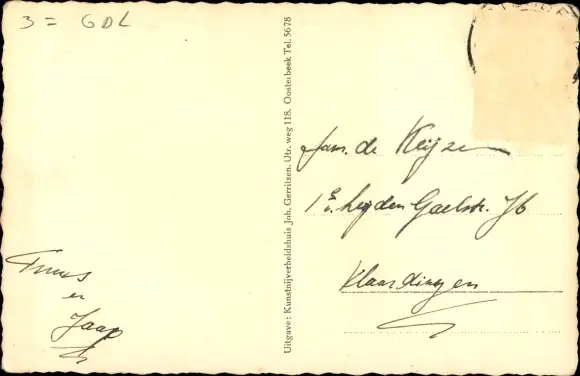 3 = GDL
Uitgave: Kunstnijverheidshuis Joh. Gerritsen. Utr. weg 118. Oosterbeek Tel. 5678
Fam. de Keijzer
1e v. Leyden Gaelstr. 76
Vlaardingen
Truus
en
Jaap